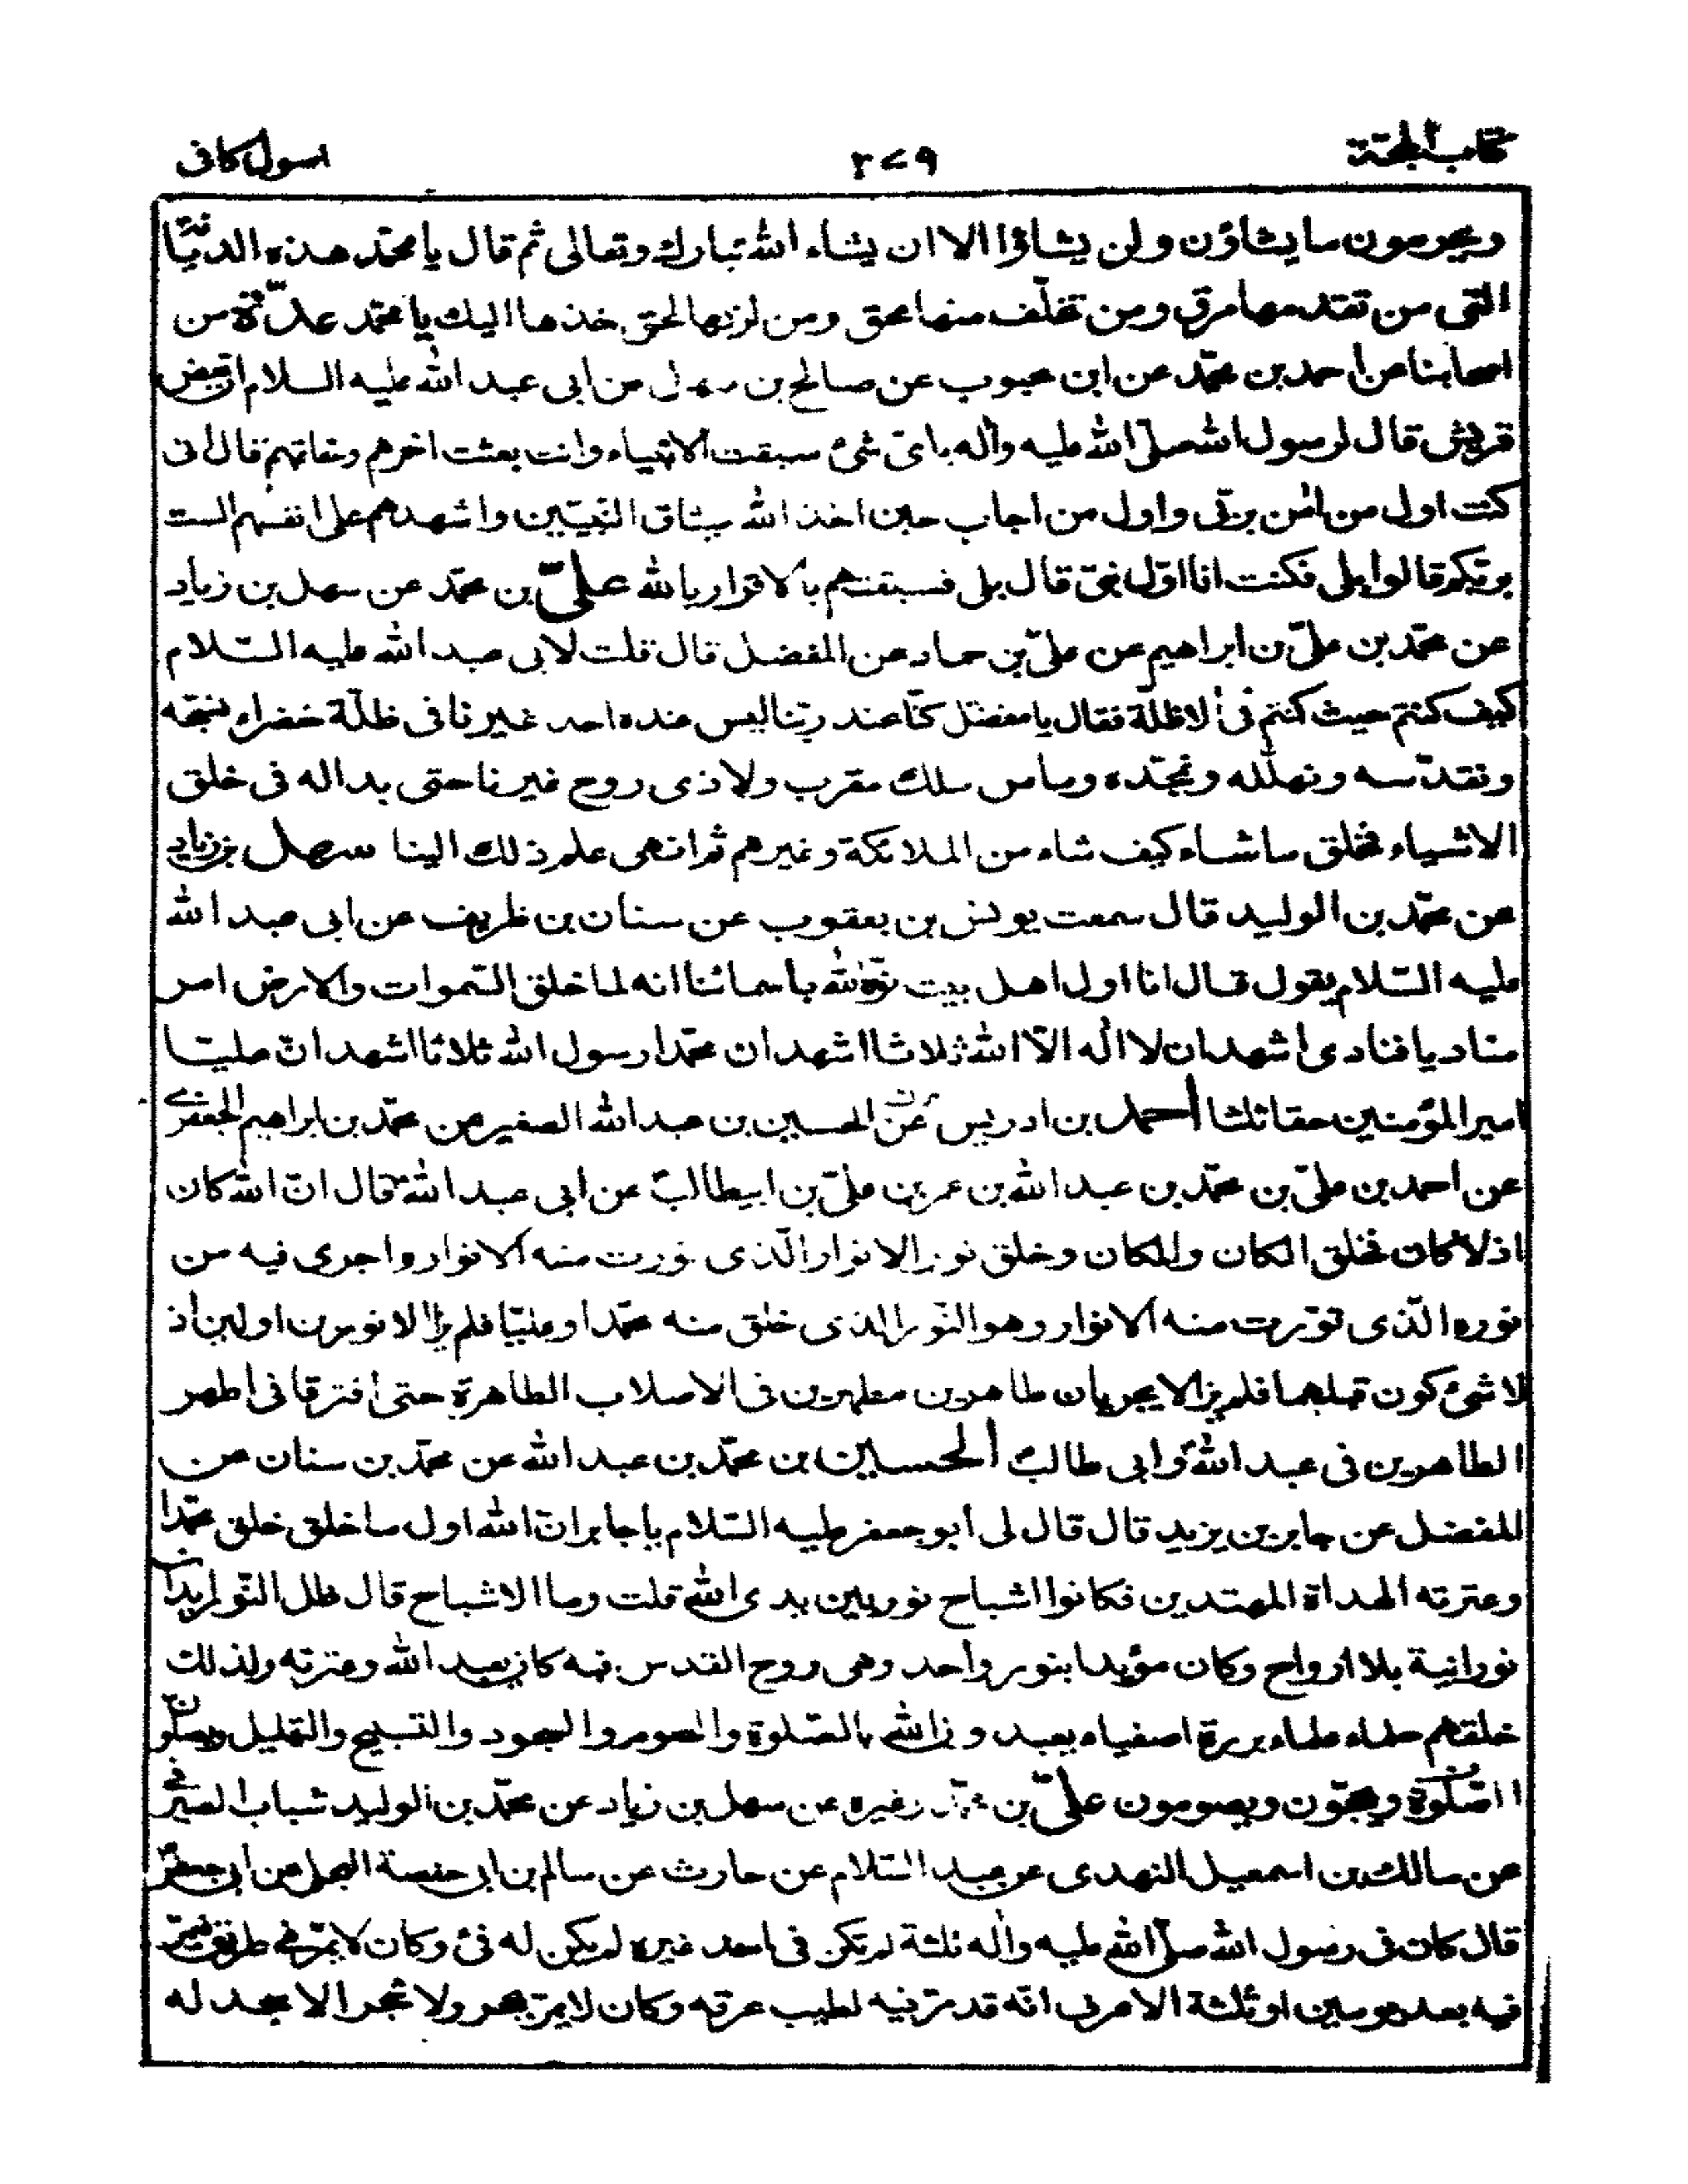 كتاب الحجة ٢٧٩ اصول كافى
ويحرمون ما يشاؤن ولن يشاؤا الا ان يشاء الله تبارك وتعالى ثم قال يا محمّد هذه الديانة
التى من تقدمها مرق ومن تخلّف عنها محق ومن لزمها لحق خذها اليك يا محمّد عدّة من
اصحابنا عن احمد بن محمّد عن ابن محبوب عن صالح بن سهل عن ابى عبد الله عليه السلام ان بعض
قريش قال لرسول الله صلّى الله عليه وآله باىّ شئ سبقت الانبياء وانت بعثت اخرهم وخاتمهم قال انى
كنت اول من امن بربّى واول من اجاب حين اخذ الله ميثاق النبيّين واشهدهم على انفسهم الست
بربّكم قالوا بلى فكنت انا اوّل نبىّ قال بلى فسبقتهم بالاقرار بالله علىّ بن محمّد عن سهل بن زياد
عن محمّد بن علىّ بن ابراهيم عن علىّ بن حماد عن المفضل قال قلت لابى عبد الله عليه السّلام
كيف كنتم حيث كنتم فى الاظلّة فقال يا مفضّل كنّا عند ربّنا ليس عنده احد غيرنا فى ظلّة خضراء نسبّحه
ونقدّسه ونهلّله ونمجّده وما من ملك مقرب ولا ذى روح غيرنا حتى بدا له فى خلق
الاشياء فخلق ما شاء كيف شاء من الملائكة وغيرهم ثم انهى علم ذلك الينا سهل بن زياد
عن محمّد بن الوليد قال سمعت يونس بن يعقوب عن سنان بن ظريف عن ابى عبد الله
عليه السّلام يقول قال انا اول اهل بيت نوّه الله باسمائنا انه لما خلق السّموات والارض امر
مناديا فنادى اشهد ان لا اله الّا الله ثلاثا اشهد ان محمّدا رسول الله ثلاثا اشهد انّ عليّا
امير المؤمنين حقا ثلثا أحمد بن ادريس عن الحسين بن عبد الله الصغير عن محمّد بن ابراهيم الجعفرى
عن احمد بن علىّ بن محمّد بن عبد الله بن عمر بن علىّ بن ابيطالب عن ابى عبد الله قال انّ الله كان
اذ لا كان فخلق الكان والمكان وخلق نور الانوار الّذى نورت منه الانوار واجرى فيه من
نوره الّذى نوّرت منه الانوار وهو النّور الذى خلق منه محمّدا وعليّا فلم يزالا نورين اولين اذ
لا شئ كون قبلهما فلم يزالا يجريان طاهرين مطهرين فى الاصلاب الطاهرة حتى افترقا فى اطهر
الطاهرين فى عبد الله وابى طالب ألحسين بن محمّد بن عبد الله عن محمّد بن سنان عن
المفضل عن جابر بن يزيد قال قال لى أبو جعفر عليه السّلام يا جابر انّ الله اول ما خلق خلق محمّدا
وعترته الهداة المهتدين فكانوا اشباح نور بين يدى الله قلت وما الاشباح قال ظل النّور ابدان
نورانية بلا ارواح وكان مؤيدا بنور واحد وهى روح القدس فبه كان يعبد الله وعترته ولذلك
خلقهم حلماء علماء بررة اصفياء يعبدون الله بالصّلوة والصوم والسجود والتسبيح والتهليل ويصلّون
الصّلوة ويحجّون ويصومون علىّ بن محمّد وغيره عن سهل بن زياد عن محمّد بن الوليد شباب الصيرفى
عن مالك بن اسمعيل النهدى عن عبد السّلام عن حارث عن سالم بن ابى حفصة العجلى عن ابى جعفر
قال كان فى رسول الله صلّى الله عليه وآله ثلثة لم تكن فى احد غيره لم يكن له فئ وكان لا يمرّ فى طريق فيمرّ
فيه بعد يومين او ثلثة الا عرف انّه قد مرّ فيه لطيب عرقه وكان لا يمرّ بحجر ولا شجر الا سجد له